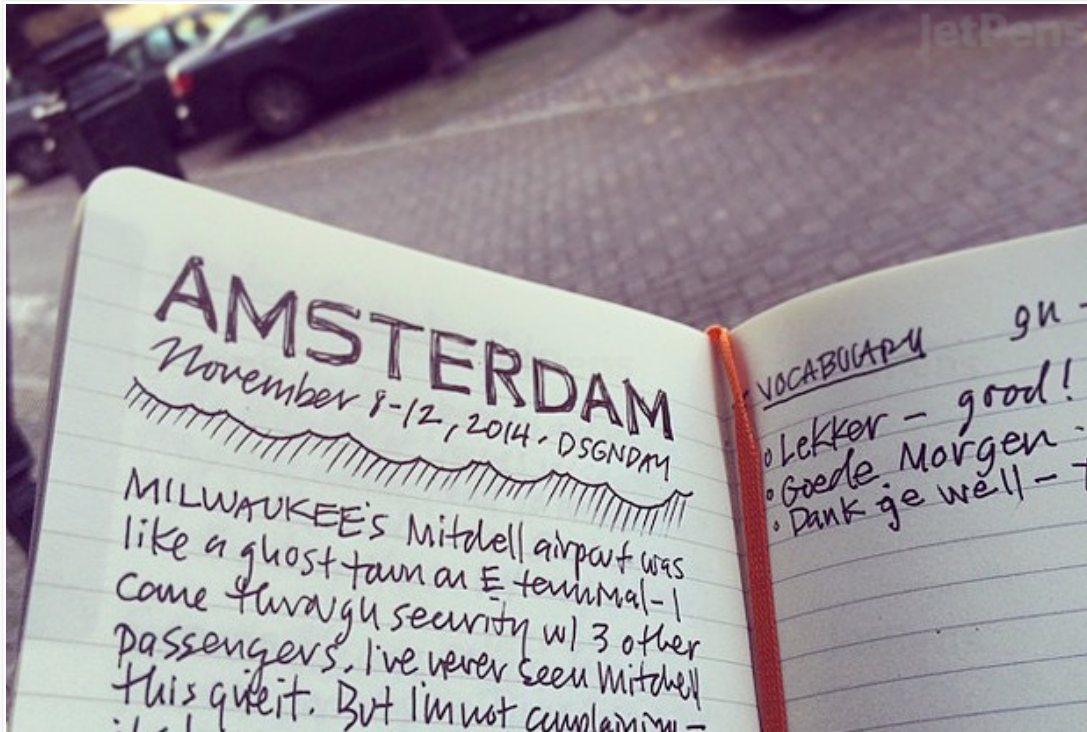 JetPens
AMSTERDAM
November 9-12, 2014 · DSGNDAY
MILWAUKEE's Mitchell airport was
like a ghost town on E terminal - I
came through security w/ 3 other
passengers. I've never seen Mitchell
this quieit. But I'm not complaining –
VOCABULARY
gn -
• Lekker – good!
• Goede Morgen -
• Dank ge well –